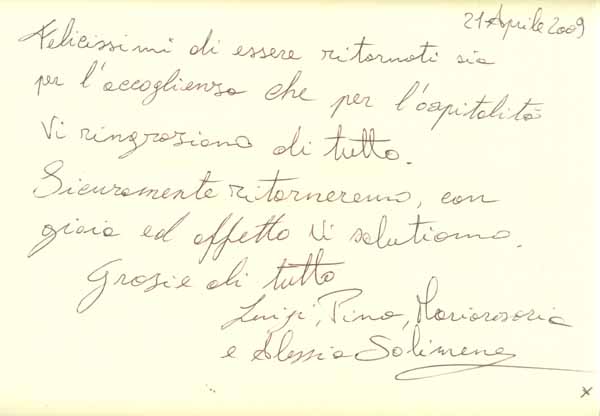 21 Aprile 2009
Felicissimi di essere ritornati sia
per l'accoglienza che per l'ospitalità
Vi ringraziamo di tutto.
Sicuramente ritorneremo, con
gioia ed affetto Vi salutiamo.
Grazie di tutto
Luigi, Pina, Mariarosaria
e Alessia Solimene
x